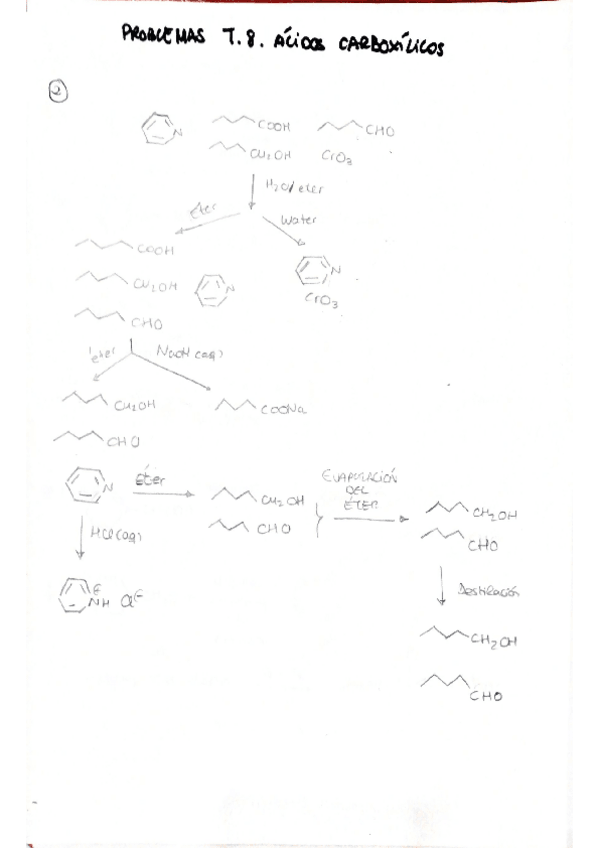 PROBLEMAS T.8. ÁCIDOS CARBOXÍLICOS
2
N COOH CHO
CH2OH CrO3
H2O/eter
éter Water
COOH
CH2OH N
CHO
N
CrO3
éter NaOH (aq)
CH2OH COONa
CHO
N Éter CH2OH
CHO
EVAPORACIÓN
DEL
ÉTER
CH2OH
CHO
HCl(aq)
NH Cl
Destilación
CH2OH
CHO